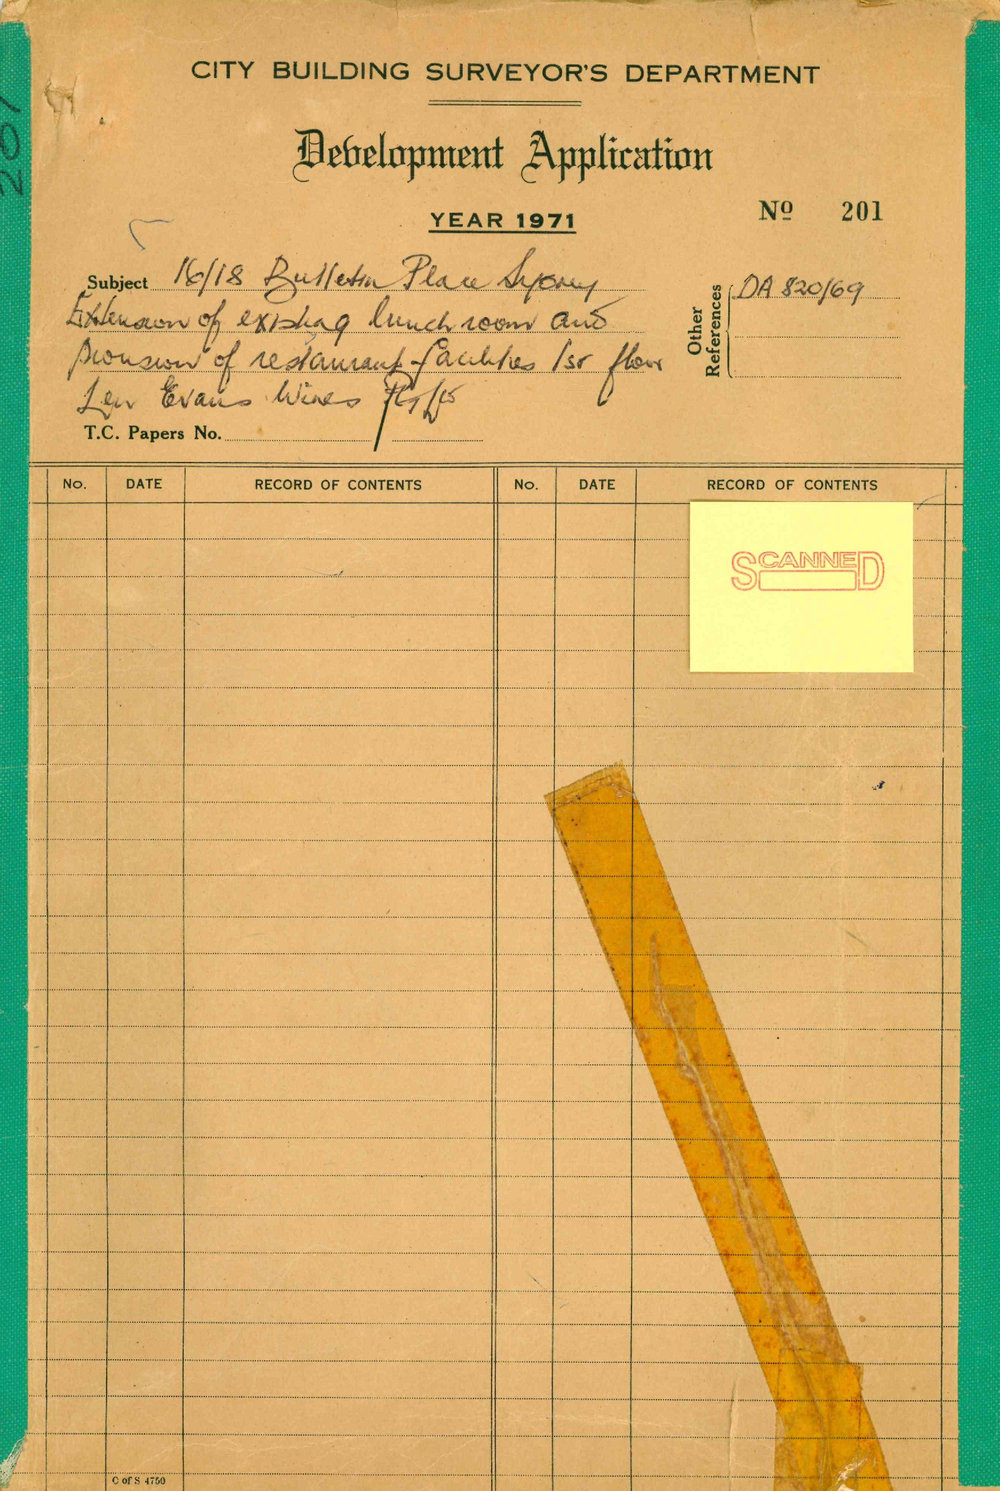 CITY BUILDING SURVEYOR'S DEPARTMENT
Development Application
YEAR 1971
Nº 201
201
Subject 16/18 Bulletin Place Sydney
Extension of existing lunch room and
provision of restaurant facilities 1st floor
Len Evans Wines P/L
T.C. Papers No.
Other References
DA 820/69
No. DATE RECORD OF CONTENTS No. DATE RECORD OF CONTENTS
SCANNED
C of S 4750